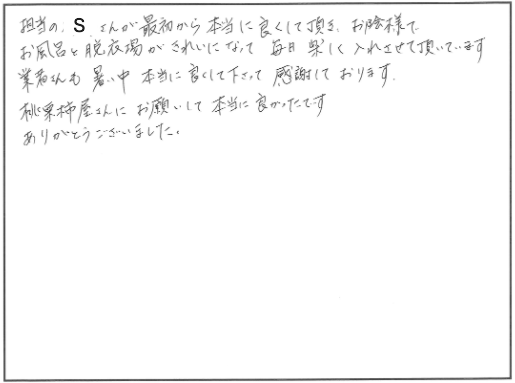 担当の S さんが最初から本当に良くして頂き、お陰様で
お風呂と脱衣場がきれいになって 毎日楽しく入れさせて頂いています
業者さんも 暑い中 本当に良くして下さって 感謝しております。
桃栗柿屋さんに お願いして 本当に良かったです
ありがとうございました。